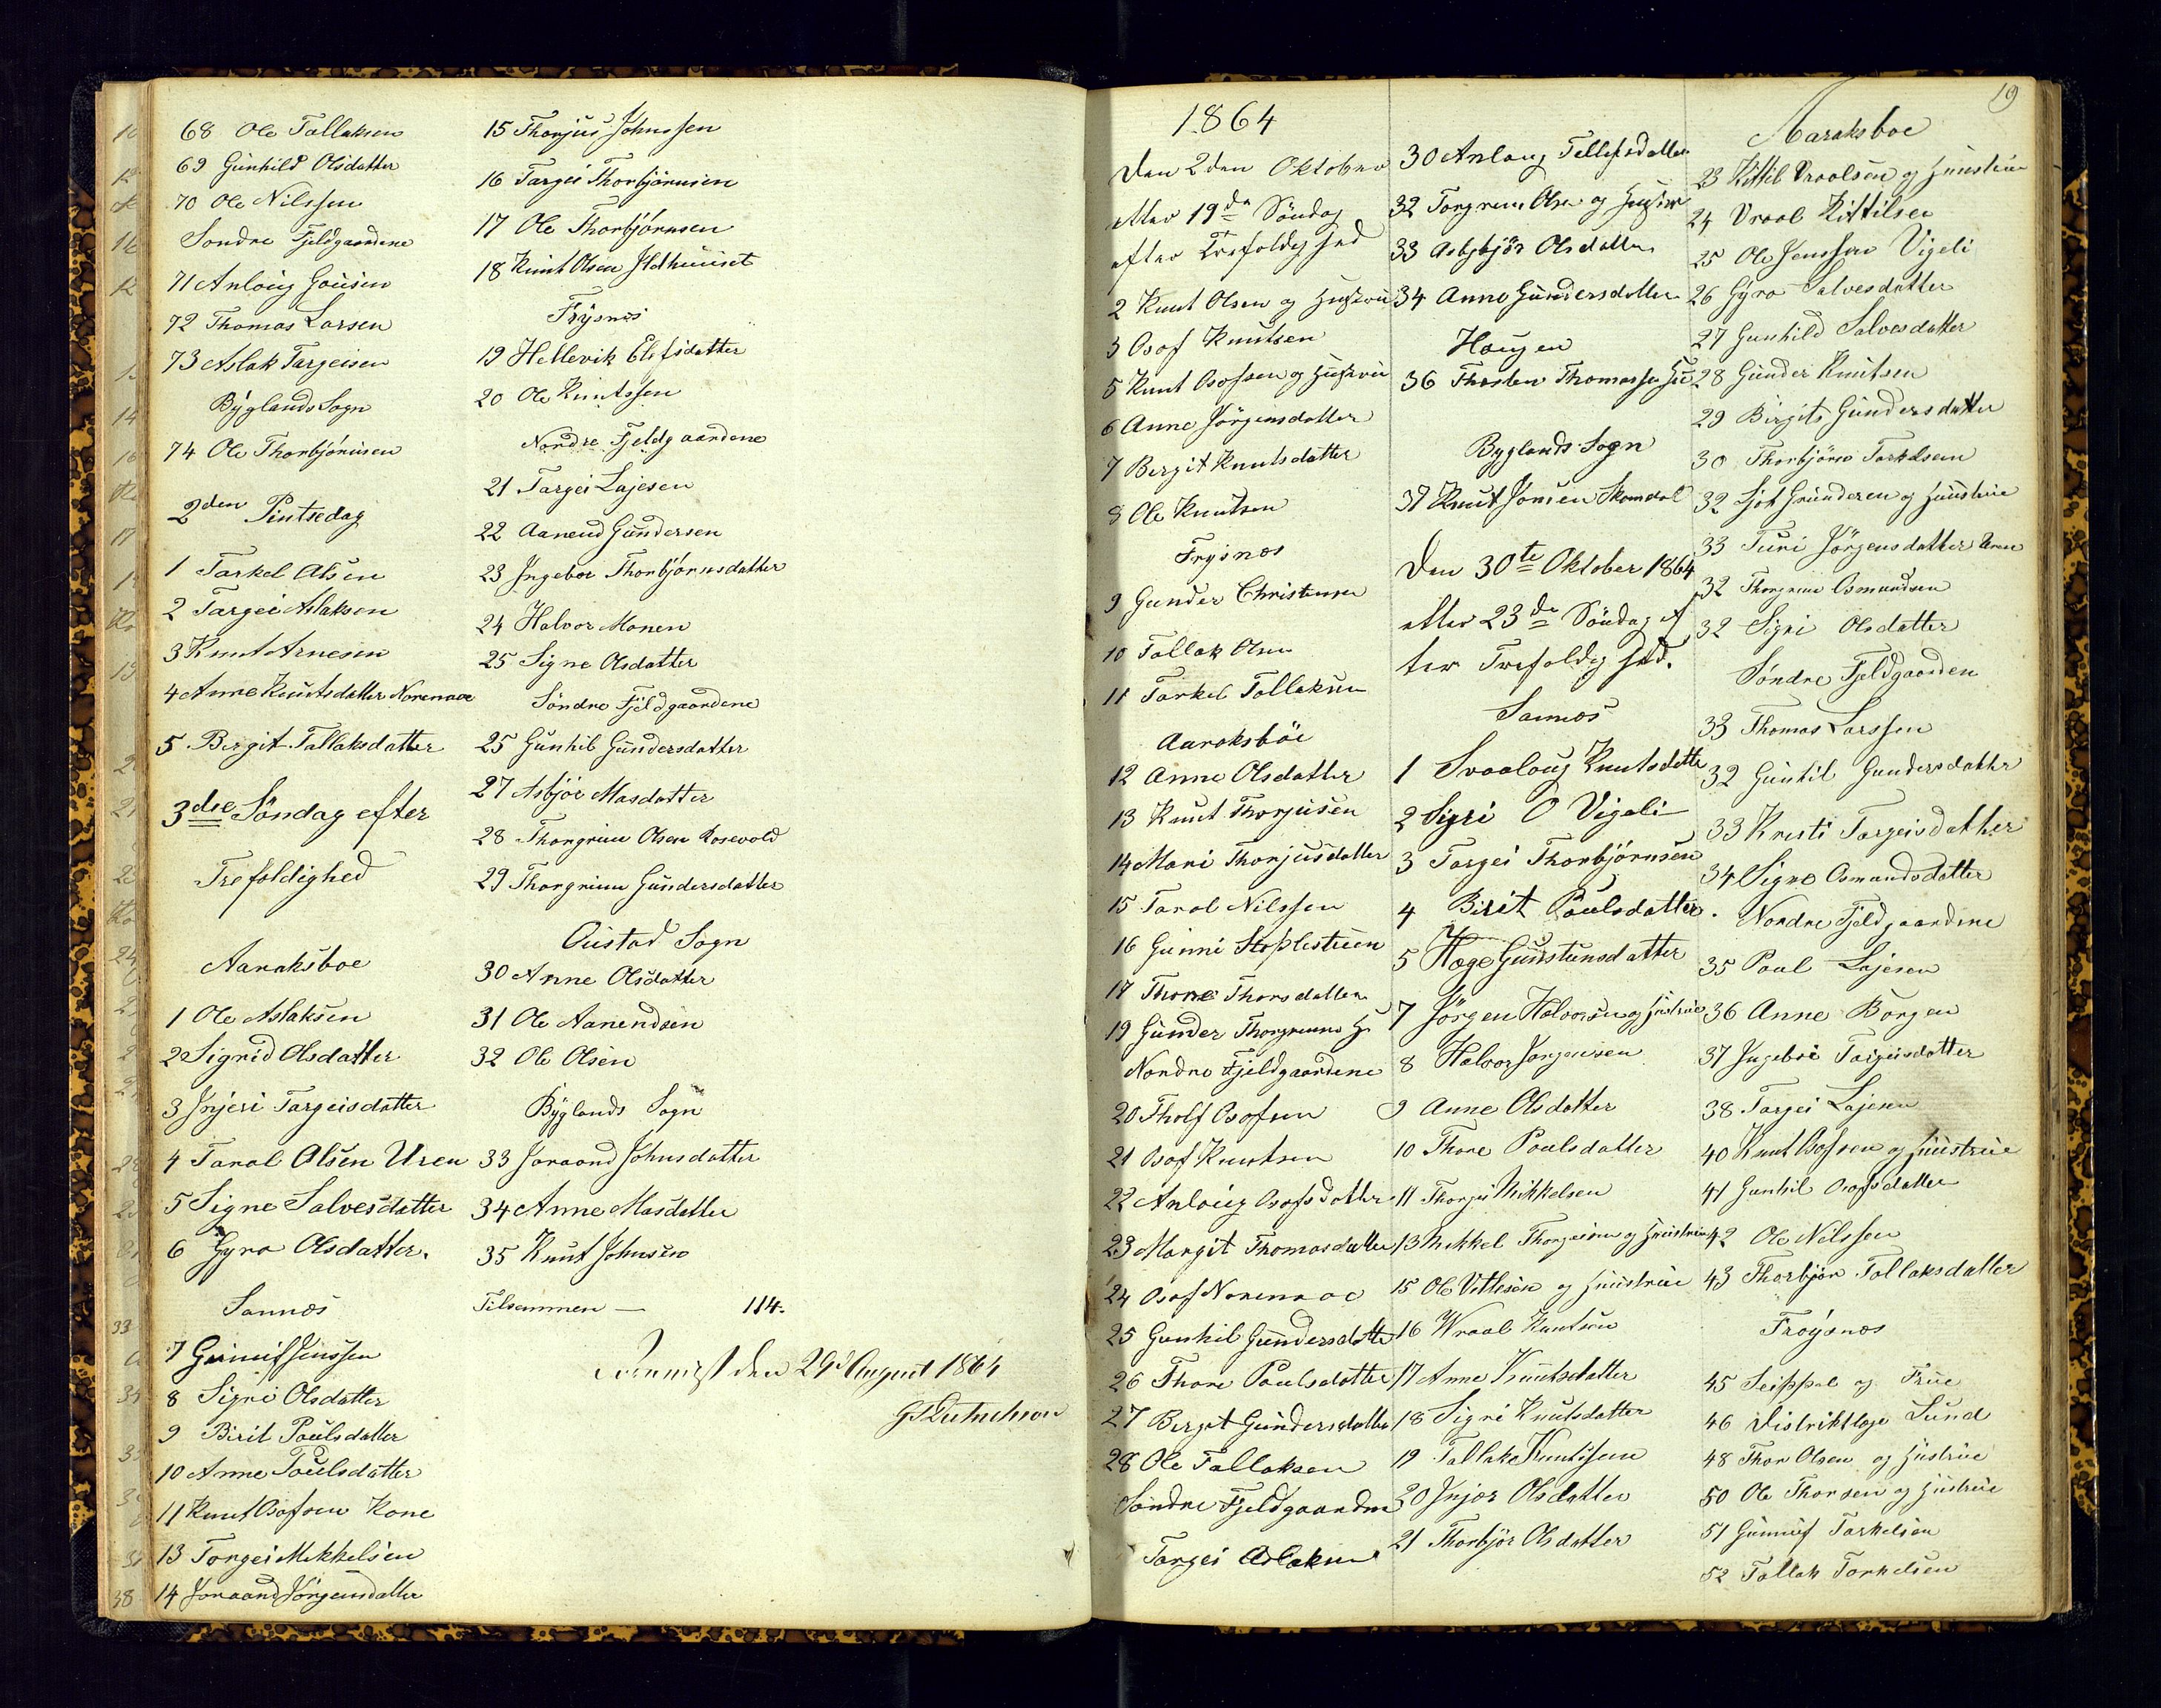 68 Ole Tallaksen
69 Gunhild Olsdatter
70 Ole Nilssen
Søndre Fjeldgaardene
71 Anloug
72 Thomas Larsen
73 Aslak Targeisen
Byglands Sogn
74 Ole Thorbjörnsen
2den Pintsedag
1 Tarkel Olsen
2 Targei Aslaksen
3 Knut Arnesen
4 Anne Knutsdatter Nomenaae
5 Bergit Tallaksdatter
3die Söndag efter
Trefoldighed
Aaraksboe
1 Ole Aslaksen
2 Sigrid Olsdatter
3 Injeri Targeisdatter
4 Taral Olsen Uren
5 Signe Salvesdatter
6 Gyro Olsdatter.
Sannes
7 Gunuf Jenssen
8 Signi Olsdatter
9 Birit Poulsdatter
10 Anne Poulsdatter
11 Knut Osofsen Kone
13 Torgei Mikkelsen
14 Joraand Jörgensdatter
15 Thorjus Johnssen
16 Targei Thorbjörnsen
17 Ole Thorbjörnsen
18 Knut Olsen Ildhuuset
Frysnes
19 Hellevik Elefsdatter
20 Ole Knutssen
Nordre Fjeldgaardene
21 Targei Lajesen
22 Aanend Gundersen
23 Ingebor Thorbjörnsdatter
24 Halvor Monen
25 Signe Olsdatter
Søndre Fjeldgaardene
25 Gunhil Gundersdatter
27 Asbjör Masdatter
28 Thorgrim Olsen Rosevold
29 Thorgrim Gundersdatter
Oustad Sogn
30 Anne Olsdatter
31 Ole Aanendsen
32 Ole Olsen
Byglands Sogn
33 Joraand Johnsdatter
34 Anne Masdatter
35 Knut Johnsen
Tilsammen — 114.
den 29d August 1864
1864
Den 2den Oktober
etter 19de Söndag
efter Trefoldighed
2 Knut Olsen og Hustrue
3 Osof Knutsen
5 Knut Osofsen og Hustrue
6 Anne Jörgensdatter
7 Bergit Knutsdatter
8 Ole Knutsen
Frysnes
9 Gunder Christensen
10 Tallak Olsen
11 Tarkel Tallaksen
Aaraksböe
12 Anne Olsdatter
13 Knut Thorjusen
14 Mari Thorjusdatter
15 Tarol Nilssen
16 Gunni
17 Thone Thorsdatter
19 Gunder Thorgrimsen H
Nordre Fjeldgaardene
20 Tholf Osofsen
21 Osof Knutsen
22 Anloug Osofsdatter
23 Margit Thomasdatter
24 Osof Nomenaae
25 Gunhil Gundersdatter
26 Thone Poulsdatter
27 Bergit Gundersdatter
28 Ole Tallaksen
Søndre Fjeldgaarden
Targei Aslaksen
30 Anloug Tellefsdatter
32 Torgrim Olsen og Hustrue
33 Asbjör Olsdatter
34 Anne Gundersdatter
Hougen
36 Thosten Thomassen Hu
Byglands Sogn
37 Knut Jonsen Skomdal
Den 30te Oktober 1864
etter 23de Söndag ef
ter Trefoldighed.
Sannes
1 Svaaloug Knutsdatter
2 Sigri O Vigeli
3 Targei Thorbjörnsen
4 Birit Poulsdatter.
5 Hæge Gunstensdatter
7 Jörgen Halvorsen og Hustrue
8 Halvor Jörgensen
9 Anne Olsdatter
10 Thone Poulsdatter
11 Thorjus Mikkelsen
13 Mikkel Thorjusen og Huustrue
15 Ole Vetlesen og Huustrue
16 Wraal Knutsen
17 Anne Knutsdatter
18 Signi Knutsdatter
19 Tallak Knutssen
20 Injer Olsdatter
21 Thorbjör Olsdatter
19
Aaraksboe
23 Kittil Vraalsen og Huustrue
24 Vraal Kittilsen
25 Ole Jenssen Vigeli
26 Gyro Salvesdatter
27 Gunhild Salvesdatter
28 Gunder Knutsen
29 Birgite Gundersdatter
30 Thorbjörn Tarkelsen
32 Ljot Gundersen og Huustrue
33 Turi Jörgensdatter Uren
32 Thorgrim Osmundsen
32 Signi Olsdatter
Søndre Fjeldgaarden
33 Thomas Larssen
32 Gunhil Gundersdatter
33 Kristi Targeisdatter
34 Signe Osmundsdatter
Nordre Fjeldgaardene
35 Poul Lajesen
36 Anne Borgen
37 Ingeboe Targeisdatter
38 Targei Lajesen
40 Knut Osofsen og Huustrue
41 Gunhil Osofsdatter
42 Ole Nilssen
43 Thorbjör Tallaksdatter
Fröysnes
45 Seippel og Frue
46 Distriktlæge Lund
48 Thor Olsen og Hustrue
50 Ole Thorsen og Hustrue
51 Gunnuf Tarkelsen
52 Tallak Tarkelsen